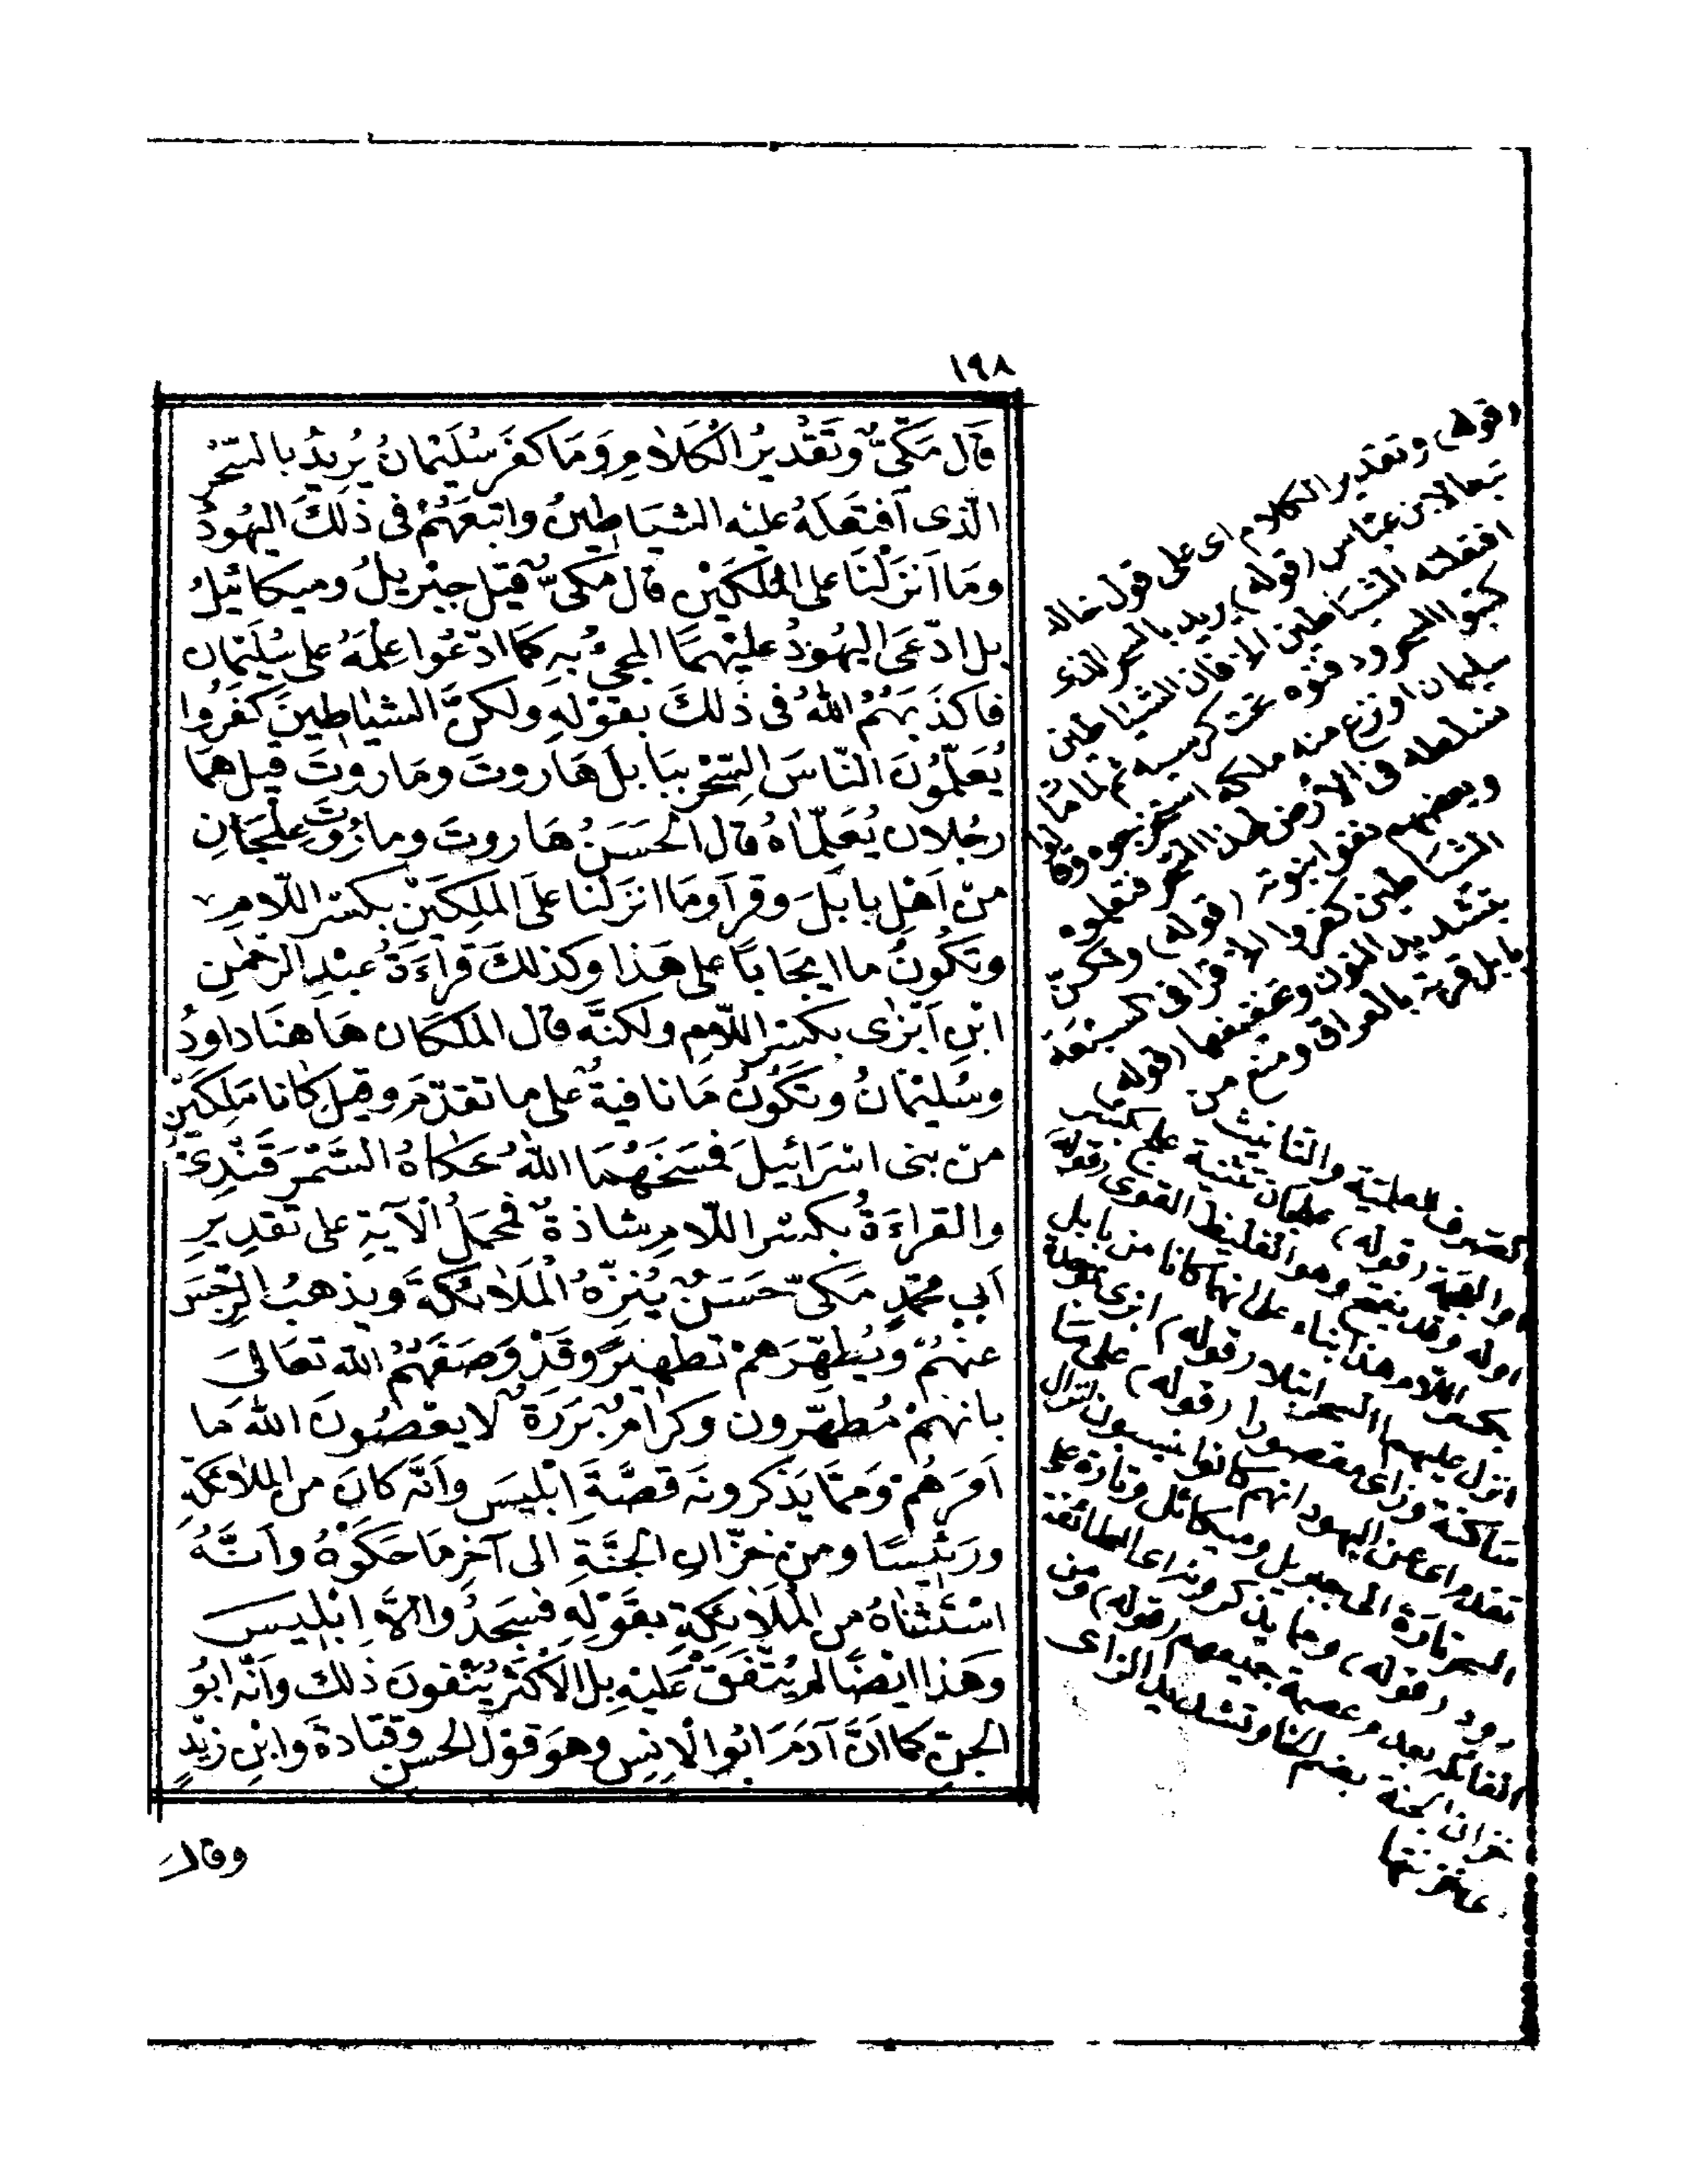 ١٩٨
قَالَ مَكِّىٌّ وَتَقْدِيرُ الْكَلَامِ وَمَا كَفَرَ سُلَيْمَانُ يُرِيدُ بِالسِّحْرِ
الَّذى افْتَعَلَهُ عليْه الشيَاطِينُ واتبعَهُمْ فى ذلكَ اليهُودُ
ومَا اَنْزَلْنَا على الملكَيْنِ قال مكىٌّ قيَل جبْريلُ وميكائيلُ
بل ادّعَى اليهُودُ عليْهِمَا المجئَ بِه كمَا ادّعُوا عِلْمَهُ على سُليْمَان
فاكذَبَهُمُ اللهُ فى ذلكَ بقوْلِهِ ولكنَّ الشيَاطِينَ كفَرُوا
يُعَلِّمُونَ النّاسَ السِّحْرَ ببَابلَ هَاروتَ ومَاروتَ قيل همَا
رجُلان يُعَلِّمَاهُ قال الحَسَنُ هَاروتَ وماروتَ عِلْجَانِ
منْ اَهْلِ بابلَ وقرأ ومَا انزلْنا علَى المَلِكَيْن بكسْر اللّامِ
وتكُونُ ما ايجَابًا على هَذا وكذلكَ قراءَةُ عبْدِ الرحْمٰنِ
ابْنِ اَبْزٰى بكسْر اللّامِ ولكنَّه قال الملكان هَا هنَا داودُ
وسُليْمَانُ وتكُونُ مَا نافيةً على ما تقدّمَ وقيل كانا مَلِكَيْنِ
من بنى اسْرَائيلَ فمسَخَهُمَا اللهُ حكاهُ السَّمَرْقَنْدِىُّ
والقراءَةُ بكسْر اللّامِ شاذةٌ فمحمَلُ الْآيَةِ على تقْدِيرِ
اَبى محمّدٍ مَكىّ حَسَنٌ يُنزِّهُ الْمَلَائكَةَ ويذهبُ الرّجْسَ
عنهُمْ ويُطَهِّرَهمْ تطهيرًا وقَدْ وَصَفَهُمُ الله تعَالىَ
بانهمْ مُطَهَّرون وكرَامٍ بَرَرَةٍ لا يعْصُونَ اللهَ مَا
اَمَرهُم وَممَّا يَذكرونَه قصَّةَ اِبْليسَ وأنَّه كانَ من الملائكةِ
ورئيسًا ومن خزّانِ الجنَّةِ الى آخر مَا حَكوْهُ وأنَّهُ
اسْتَثْنَاهُ من المَلَائكةِ بقَوْلِهِ فسجَدُوا اِلَّا اِبْليسَ
وَهَذا ايْضًا لم يُتَّفَقْ عَليْهِ بل الاكْثَرُ يَنْفونَ ذلك وأنَّه ابُو
الجنِّ كما اَنَّ آدَمَ ابُوا الْاِنسِ وهوَ قوْل الحسن وقتادةَ وابْنِ زيْدٍ
وقال
(قوله وتقدير الكلام) اى على قول خاله
تبعا لابن عبّاس (قوله) يريد بالسحر الذى
افتعلته الشياطين الخ فان الشياطين
كتبوا السحر ودفنوه تحت كرسيه ثم لما مات
سليمان او نزع منه ملكه استخرجوه وقالوا
تسلطه فى الارض لهذا السحر فتعلموه
وبعضهم نفوا نبوته (قوله) ولكنّ
الشياطين كفروا الخ قرأ فى السبعة
بتشديد النون وتخفيفها (قوله)
بابل قرية بالعراق ومنع من
الصرف للعلمية والتانيث
او العجمة (قوله) علجان تثنية علج بكسر
اوله وقد يفتح وهو الغليظ القوى (قوله)
بكسر اللام هذا بناء على انهما كانا من بابل
انزل عليهما السحر ابتلاء (قوله) ابزى بموحدة
ساكنة وزاى مقصورا (قوله) على ما
تقدم اى عن اليهود انهم كانوا ينسبون انزال
السحر تارة الى جبريل وميكائل وتارة على
داود (قوله) وما يذكرونه اى الطائفة
القائلة بعدم عصمة جميعهم (قوله) ومن
خزان الجنة بضم الخاء وتشديد الزاى
اى خزنتها